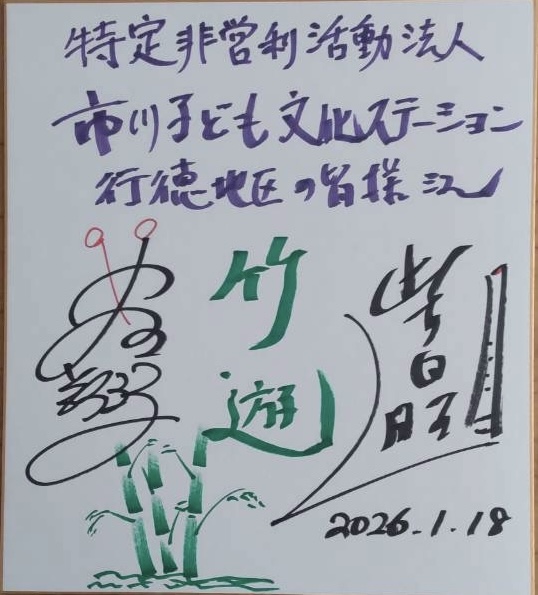 特定非営利活動法人
市川子ども文化ステーション
行徳地区の皆様江
竹
遊
2026.1.18